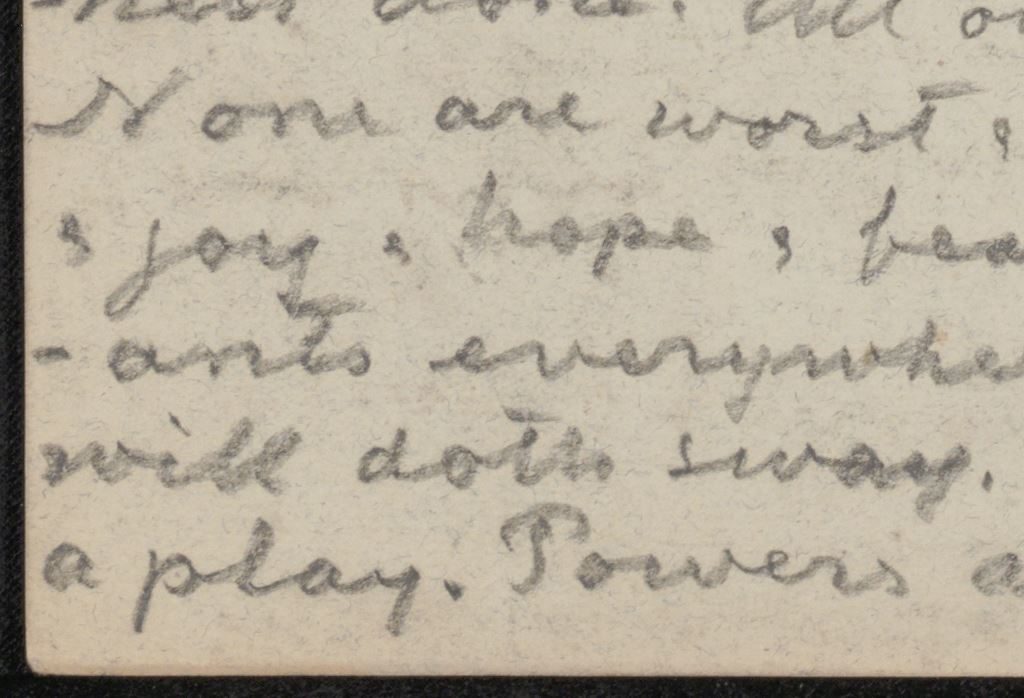 -ness done. All
None are worst &
& joy & hope & fea
-ants everywhe
will doth sway.
a play. Powers a